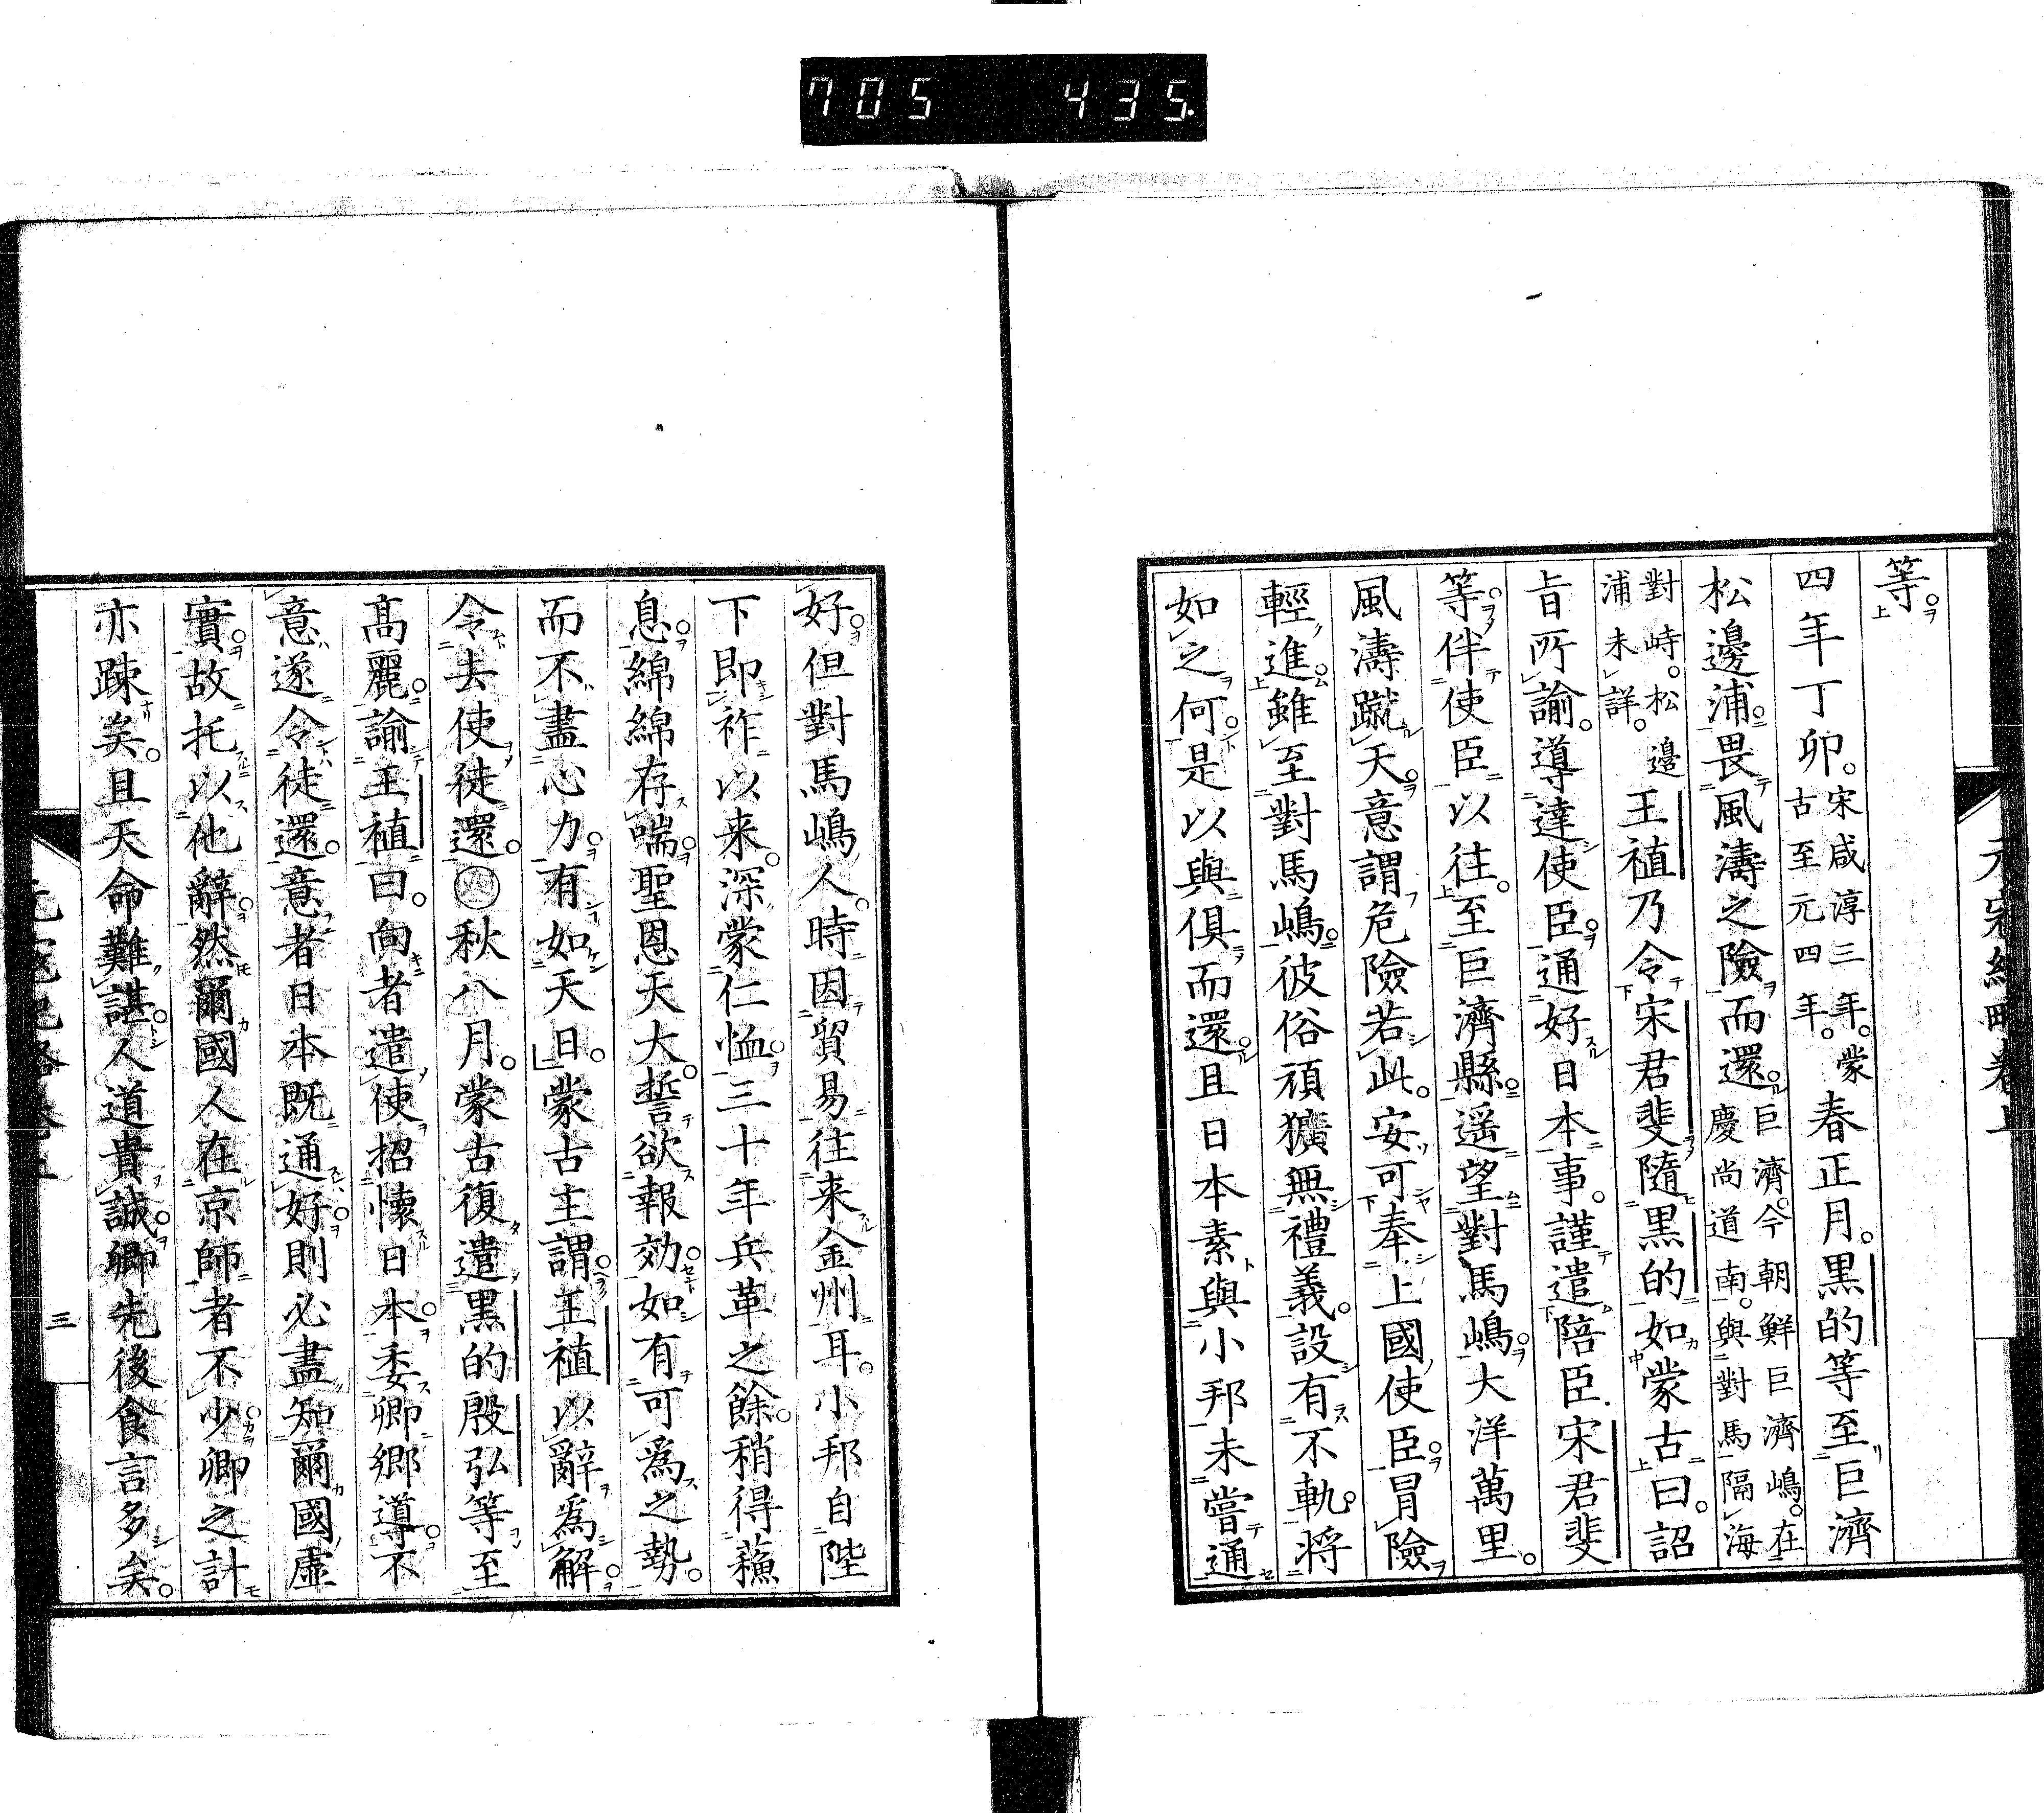 705 435.
等。
四年丁卯。宋咸淳三年。蒙古至元四年。春正月。黒的等至巨濟
松邊浦。畏風濤之險而還。巨濟。今朝鮮巨濟嶋。在慶尚道南。與對馬隔海
對峙。松邊浦未詳。王禃乃令宋君斐隨黒的如蒙古曰。詔
旨所諭。導達使臣。通好日本事。謹遣陪臣宋君斐
等。伴使臣以往。至巨濟縣。遥望對馬嶋。大洋萬里。
風濤蹴天。意謂危險若此。安可奉上國使臣。冒險
輕進。雖至對馬嶋。彼俗頑獷無禮義。設有不軌。將
如之何。是以與俱而還。且日本素與小邦未嘗通
好。但對馬嶋人。時因貿易往来金州耳。小邦自陛
下即祚以来。深蒙仁恤。三十年兵革之餘。稍得蘓
息。綿綿存喘。聖恩天大。誓欲報効。如有可爲之勢。
而不盡心力。有如天日。蒙古主謂王禃以辭爲解。
令去使徒還。秋八月。蒙古復遣黒的殷弘等至
髙麗。諭王禃曰。向者遣使招懷日本。委卿郷導。不
意遂令徒還。意者日本既通好。則必盡知爾國虛
實。故托以他辭。然爾國人在京師者不少。卿之計
亦踈矣。且天命難諶。人道貴誠。卿先後食言多矣。
三